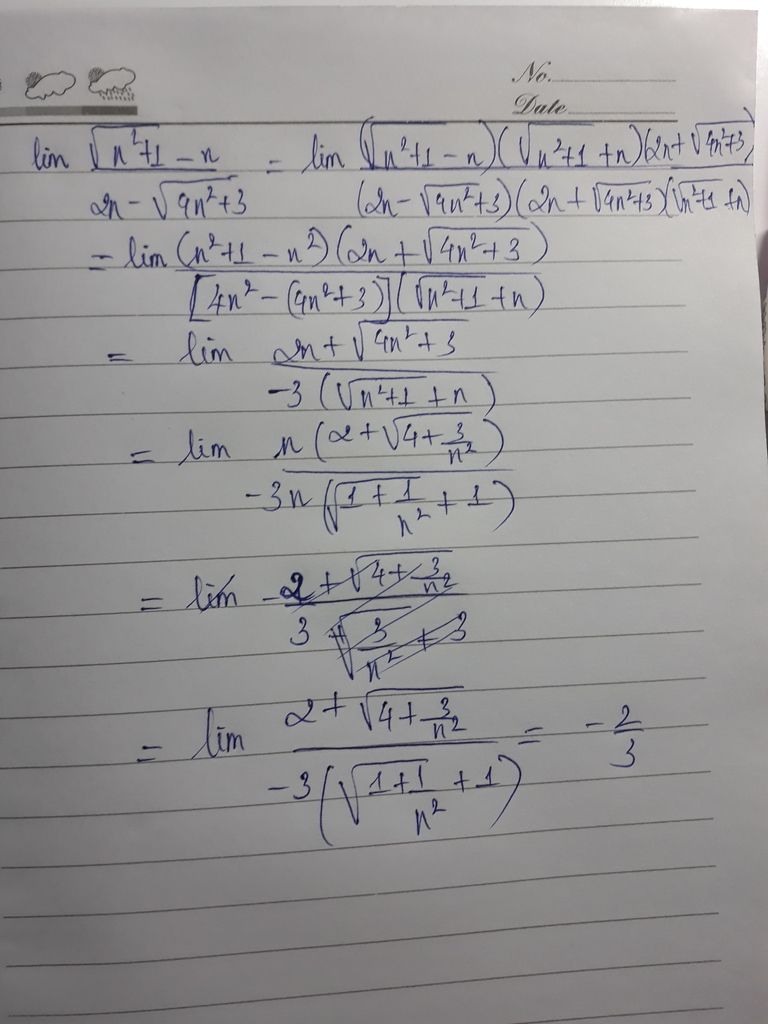 No.
Date
lim (√(n²+1) - n)/(2n - √(4n²+3)) = lim ((√(n²+1) - n)(√(n²+1) + n)(2n + √(4n²+3)))/((2n - √(4n²+3))(2n + √(4n²+3))(√(n²+1) + n))
= lim ((n²+1 - n²)(2n + √(4n²+3)))/([4n² - (4n²+3)](√(n²+1) + n))
= lim (2n + √(4n²+3))/(-3(√(n²+1) + n))
= lim (n(2 + √(4 + 3/n²)))/(-3n(√(1 + 1/n²) + 1))
= lim -(2 + √(4 + 3/n²))/(3√(3/n² + 3))
= lim (2 + √(4 + 3/n²))/(-3(√(1 + 1/n²) + 1)) = -2/3